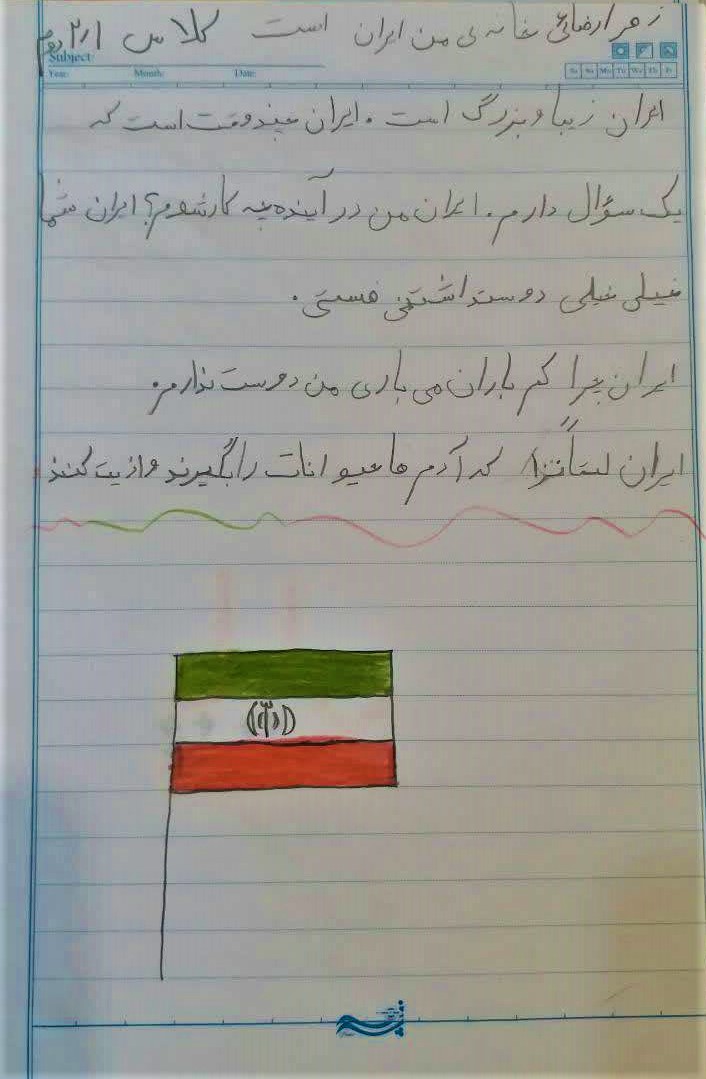 زهرا رضائی خانه ی من ایران است کلاس ۲/۱ دوم
Subject:
Year: Month: Date:
Sa Su Mo Tu We Th Fr
ایران زیبا و بزرگ است . ایران چند وقت است که
یک سؤال دارم . ایران من در آینده چه کاره شوم؟ ایران شما
خیلی خیلی دوست داشتنی هستی .
ایران چرا کم باران می باری من دوست ندارم .
ایران لطفاً نزار که آدم ها حیوانات را بگیرند و اذیت کنند